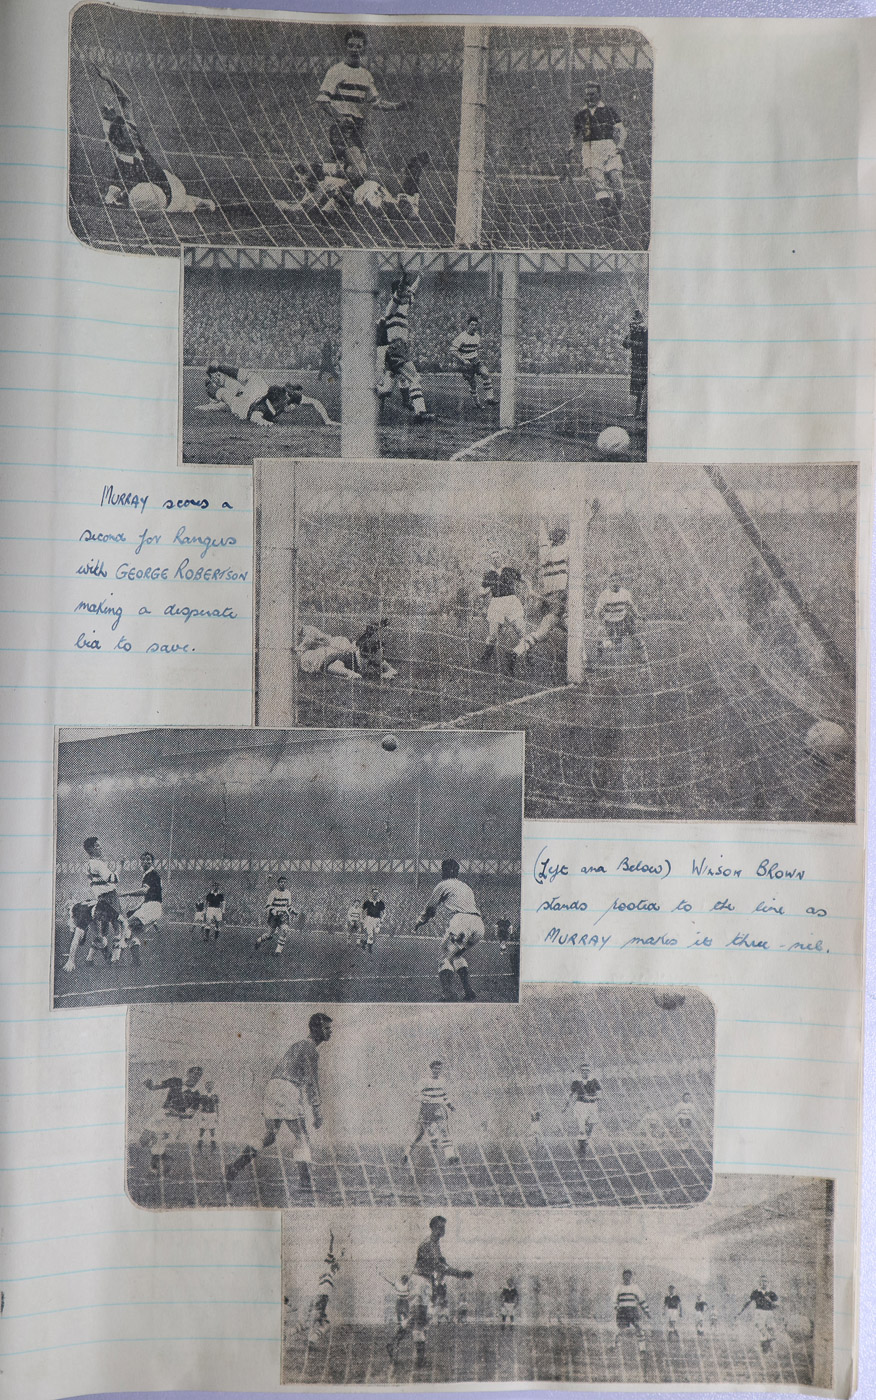 MURRAY scores a
second for Rangers
with GEORGE ROBERTSON
making a desperate
bid to save.
(Left and Below) WILSON BROWN
stands rooted to the line as
MURRAY makes it three-nil.